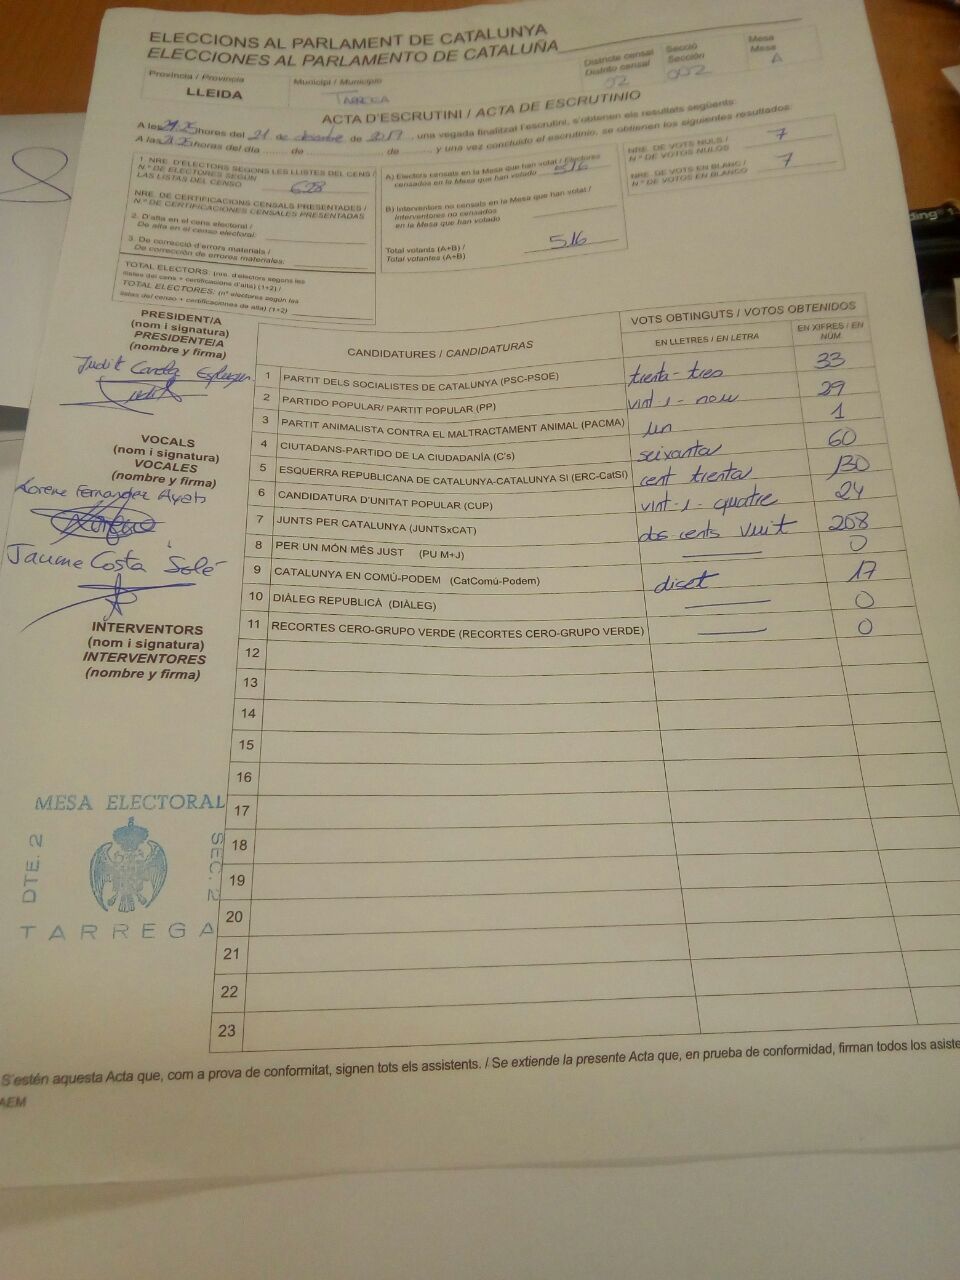 ELECCIONS AL PARLAMENT DE CATALUNYA
ELECCIONES AL PARLAMENTO DE CATALUÑA
Província / Provincia
LLEIDA
Municipi / Municipio
TARREGA
Districte censal
Distrito censal
02
Secció
Sección
002
Mesa
Mesa
A
ACTA D'ESCRUTINI / ACTA DE ESCRUTINIO
A les 21:25 hores del 21 de desembre de 2017, una vegada finalitzat l'escrutini, s'obtenen els resultats següents:
A las 21:25 horas del día ........ de ........ de ........ y una vez concluido el escrutinio, se obtienen los siguientes resultados:
1. NRE. D'ELECTORS SEGONS LES LLISTES DEL CENS /
N.º DE ELECTORES SEGÚN
LAS LISTAS DEL CENSO
628
NRE. DE CERTIFICACIONS CENSALS PRESENTADES /
N.º DE CERTIFICACIONES CENSALES PRESENTADAS
2. D'alta en el cens electoral /
De alta en el censo electoral:
3. De correcció d'errors materials /
De corrección de errores materiales:
TOTAL ELECTORS: (nre. d'electors segons les
llistes del cens + certificacions d'alta) (1+2) /
TOTAL ELECTORES: (nº electores según las
listas del censo + certificaciones de alta) (1+2)
A) Electors censats en la Mesa que han votat / Electores
censados en la Mesa que han votado 516
B) Interventors no censats en la Mesa que han votat /
Interventores no censados
en la Mesa que han votado
Total votants (A+B) /
Total votantes (A+B)
516
NRE. DE VOTS NULS /
N.º DE VOTOS NULOS
7
NRE. DE VOTS EN BLANC /
N.º DE VOTOS EN BLANCO
7
PRESIDENT/A
(nom i signatura)
PRESIDENTE/A
(nombre y firma)
Judit
VOCALS
(nom i signatura)
VOCALES
(nombre y firma)
Lorena Fernandez
Jaume Costa Solé
INTERVENTORS
(nom i signatura)
INTERVENTORES
(nombre y firma)
CANDIDATURES / CANDIDATURAS
VOTS OBTINGUTS / VOTOS OBTENIDOS
EN LLETRES / EN LETRA
EN XIFRES / EN NÚM.
1 PARTIT DELS SOCIALISTES DE CATALUNYA (PSC-PSOE) trenta-tres 33
2 PARTIDO POPULAR/ PARTIT POPULAR (PP) vint-i-nou 29
3 PARTIT ANIMALISTA CONTRA EL MALTRACTAMENT ANIMAL (PACMA) un 1
4 CIUTADANS-PARTIDO DE LA CIUDADANÍA (C's) seixanta 60
5 ESQUERRA REPUBLICANA DE CATALUNYA-CATALUNYA SI (ERC-CatSI) cent trenta 130
6 CANDIDATURA D'UNITAT POPULAR (CUP) vint-i-quatre 24
7 JUNTS PER CATALUNYA (JUNTSxCAT) dos cents vuit 208
8 PER UN MÓN MÉS JUST (PU M+J) 0
9 CATALUNYA EN COMÚ-PODEM (CatComú-Podem) diset 17
10 DIÀLEG REPUBLICÀ (DIÀLEG) 0
11 RECORTES CERO-GRUPO VERDE (RECORTES CERO-GRUPO VERDE) 0
12
13
14
15
16
17
18
19
20
21
22
23
MESA ELECTORAL
DTE. 2
SEC. 2
TARREGA
S'estén aquesta Acta que, com a prova de conformitat, signen tots els assistents. / Se extiende la presente Acta que, en prueba de conformidad, firman todos los asiste
AEM